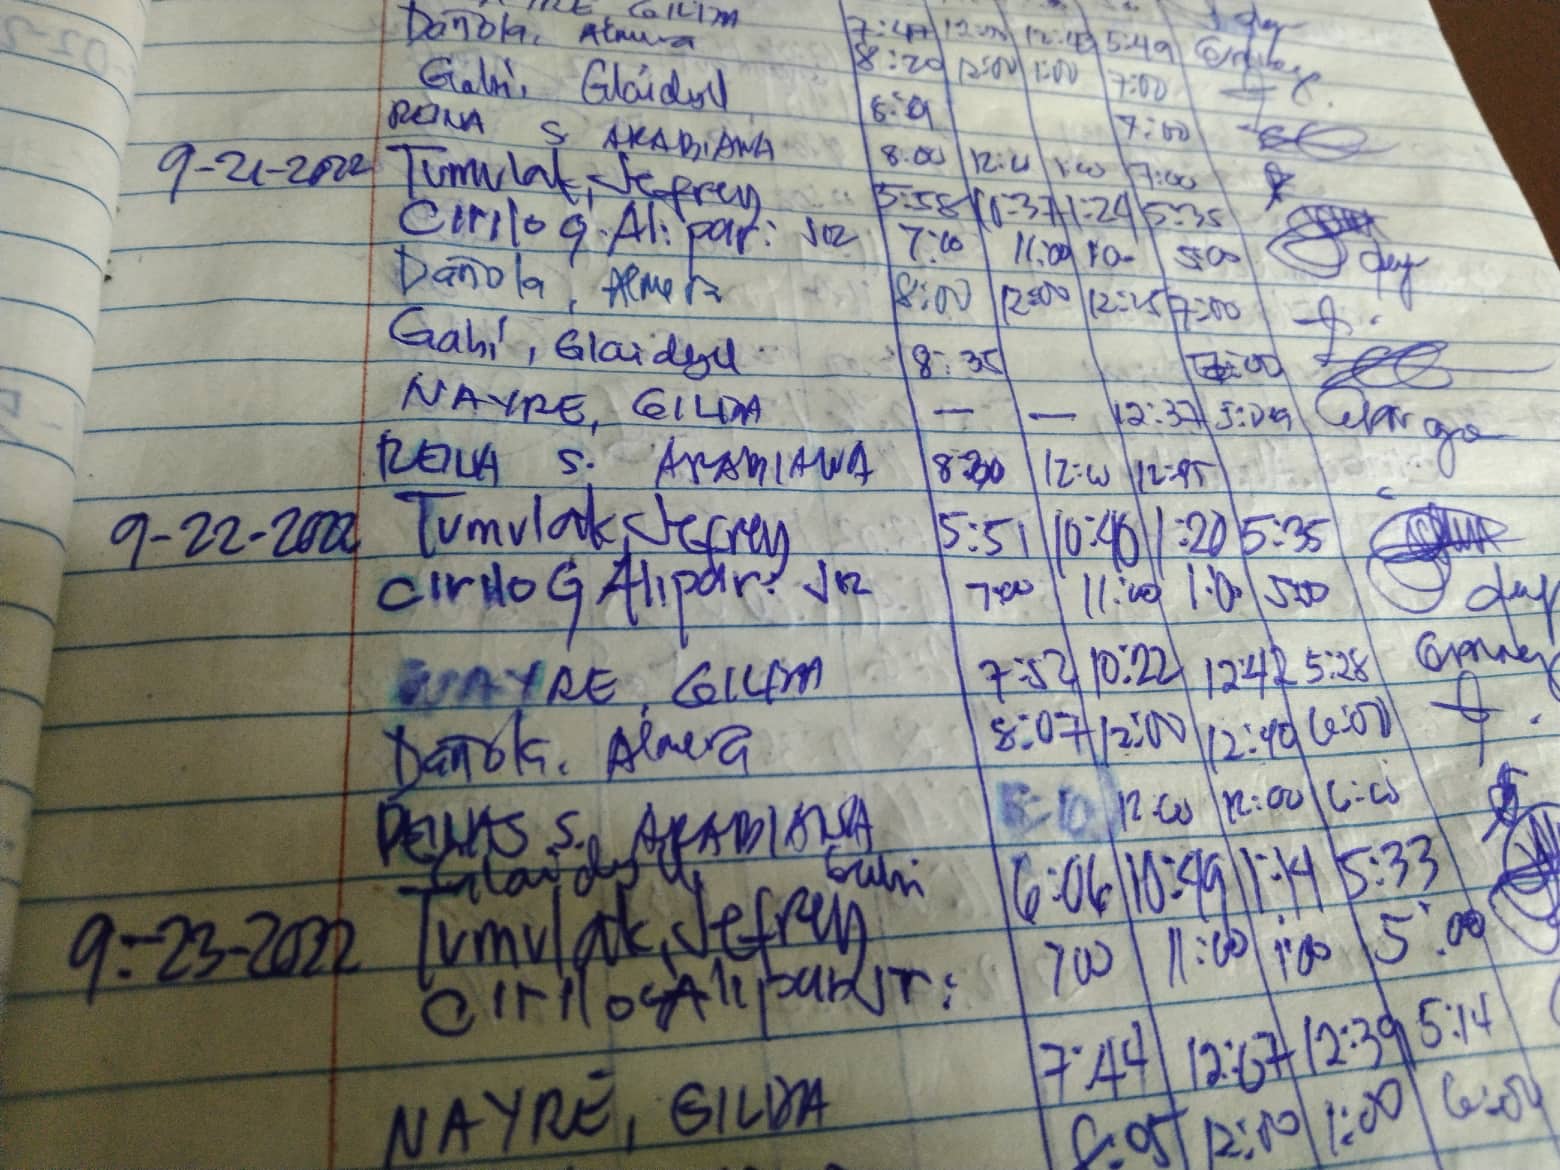 GILDA
Dañola, Almera 7:47 12:00 12:45 5:49
Gabi, Glaidyl 8:20 12:00 1:00 7:00
RONA S ARABIANA 8:19 7:00
8:00 12:00 1:00 7:00
9-21-2022 Tumulak, Jefrey 5:58 10:37 1:24 5:35
Cirilo G. Alipar: Jr 7:00 11:00 1:00 5:00
Dañola, Almera 8:00 12:00 12:25 7:00
Gabi, Glaidyl 8:35 7:00
NAYRE, GILDA — — 12:37 5:29
RONA S. ARABIANA 8:30 12:00 12:45
9-22-2022 Tumulak, Jefrey 5:51 10:40 1:20 5:35
Cirilo G Alipar: Jr 7:00 11:00 1:00 5:00
NAYRE, GILDA 7:52 10:22 12:42 5:28
Dañola, Almera 8:07 12:00 12:40 6:00
S. ARABIANA 8:10 12:00 12:00 6:00
Glaidyl Gabi
9-23-2022 Tumulak, Jefrey 6:06 10:49 1:14 5:33
Cirilo G Alipar Jr: 700 11:00 1:00 5:00
NAYRE, GILDA 7:44 12:07 12:39 5:14
12:00 1:00